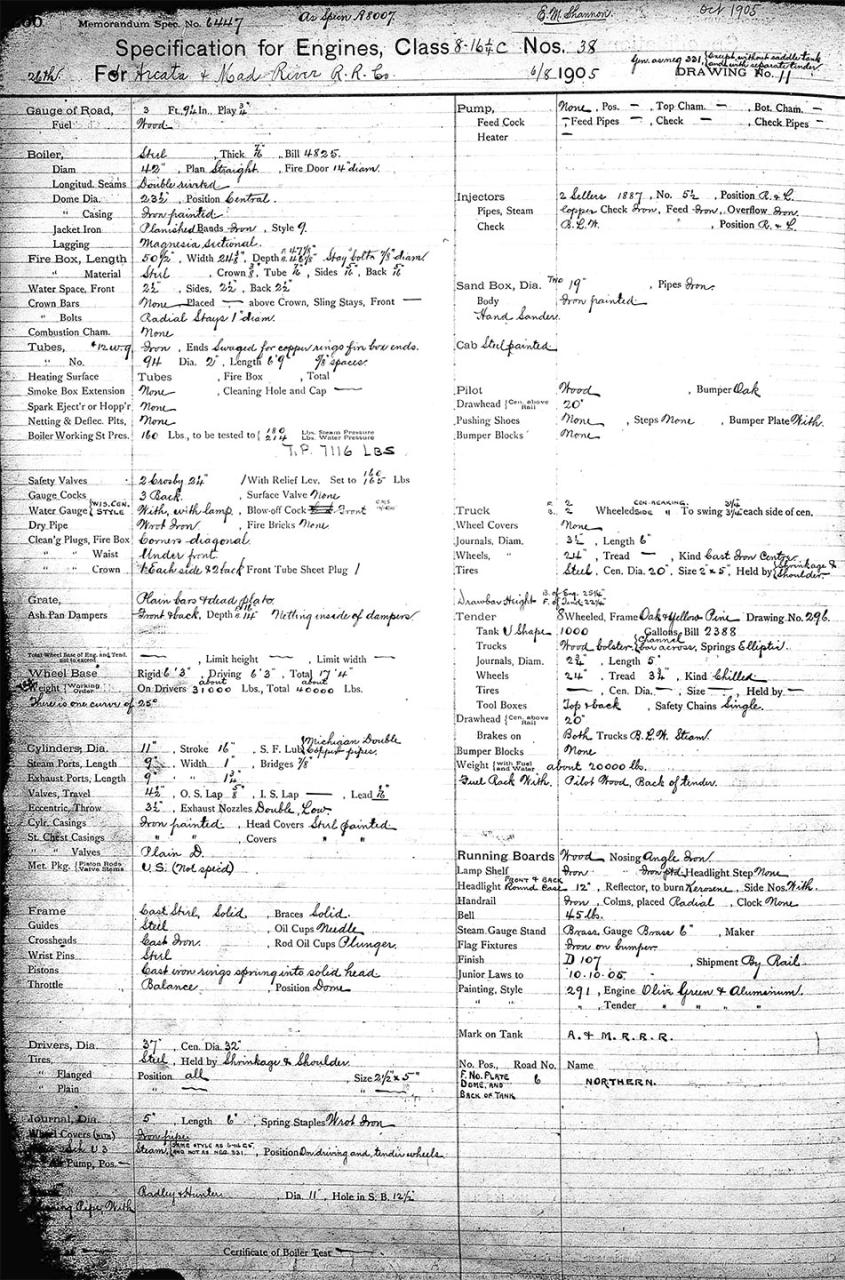 Memorandum Spec. No. 6447
As Specn R8007
E. M. Shannon.
Oct 1905
Specification for Engines, Class 8-16¼C Nos. 38
26th For Arcata & Mad River R.R. Co. 6/8 1905
Gen. as neg 331, {except without saddle tank and with separate tender
DRAWING No. 11
Gauge of Road, 3 Ft. 9¼ In., Play ¾"
Fuel Wood
Boiler, Steel, Thick 7/16", Bill 4825.
Diam 42", Plan Straight, Fire Door 14" diam.
Longitud. Seams Double riveted
Dome Dia. 23½, Position Central.
" Casing Iron painted
Jacket Iron Planished Bands Iron, Style 9.
Lagging Magnesia Sectional.
Fire Box, Length 50½", Width 24¾", Depth Stay bolts ⅞" diam
" Material Steel, Crown ⅜, Tube 7/16, Sides 5/16, Back 5/16
Water Space, Front 2½", Sides, 2½, Back 2½"
Crown Bars None Placed — above Crown, Sling Stays, Front —
" Bolts Radial Stays 1" diam.
Combustion Cham. None
Tubes, #12 w.g. Iron, Ends Swaged for copper rings fire box ends.
" No. 94 Dia. 2", Length 6' 9" ⅝ spaces.
Heating Surface Tubes , Fire Box , Total
Smoke Box Extension None, Cleaning Hole and Cap —
Spark Eject'r or Hopp'r None
Netting & Deflec. Plts, None
Boiler Working St Pres. 160 Lbs., to be tested to { 180 Lbs. Steam Pressure 214 Lbs. Water Pressure
T.P. 7116 LBS
Safety Valves 2 Crosby 2¼" 1 With Relief Lev, Set to 160 165 Lbs
Gauge Cocks 3 Back. , Surface Valve None
Water Gauge {WIS. CEN. STYLE With, with lamp., Blow-off Cock Front
Dry Pipe Wrot Iron, Fire Bricks None
Clean'g Plugs, Fire Box Corners diagonal
" " Waist Under front
" " Crown 1 Each side & 2 back Front Tube Sheet Plug 1
Grate, Plain bars & dead plate.
Ash Pan Dampers Front & back, Depth Netting inside of dampers
Total Wheel Base of Eng. and Tend. not to exceed —, Limit height —, Limit width —
Wheel Base Rigid 6' 3", Driving 6' 3", Total 17' 4"
Weight {Working Order On Drivers about 31000 Lbs., Total about 40000 Lbs.
There is one curve of 25°
Cylinders, Dia. 11", Stroke 16", S. F. Lub {Michigan Double Copper pipes.
Steam Ports, Length 9", Width 1" , Bridges ⅞"
Exhaust Ports, Length 9" " 1¾"
Valves, Travel 4½", O. S. Lap ⅝", I. S. Lap —, Lead 1/16"
Eccentric, Throw 3½", Exhaust Nozzles Double, Low.
Cylr. Casings Iron painted, Head Covers Steel painted
St. Chest Casings " " , Covers " "
" " Valves Plain D.
Met. Pkg. {Piston Rods Valve Stems U.S. (Not specd)
Frame Cast Steel, Solid , Braces Solid.
Guides Steel , Oil Cups Needle
Crossheads Cast Iron. , Rod Oil Cups Plunger.
Wrist Pins Steel
Pistons Cast iron rings sprung into solid head
Throttle Balance , Position Dome
Drivers, Dia. 37", Cen. Dia. 32"
Tires, Steel, Held by Shrinkage & Shoulder
" Flanged Position all , Size 2½" x 5"
" Plain " — , " —
Journal, Dia. 5", Length 6", Spring Staples Wrot Iron
Wheel Covers Iron pipe
Steam, {SAME STYLE AS AND NOT AS NEG. 331. , Position On driving and tender wheels
Air Pump, Pos. —
Radley & Hunter , Dia. 11", Hole in S. B. 12½"
Pipe, With
Certificate of Boiler Test —
Pump, None, Pos. — , Top Cham. — , Bot. Cham. —
Feed Cock —, Feed Pipes — , Check — , Check Pipes —
Heater —
Injectors 2 Sellers 1887, No. 5½, Position R. & L.
Pipes, Steam Copper Check Iron, Feed Iron, Overflow Iron.
Check B.L.W. " , Position R. & L.
Sand Box, Dia. TWO 19" , Pipes Iron.
Body Iron painted
Hand Sander.
Cab Steel painted
Pilot Wood , Bumper Oak
Drawhead {Cen. above Rail 20"
Pushing Shoes None , Steps None , Bumper Plate With.
Bumper Blocks None
Truck F. 2 B. 2 Wheeled CEN. BEARING. SIDE " To swing each side of cen.
Wheel Covers None
Journals, Diam. 3½, Length 6"
Wheels, " 24", Tread — , Kind Cast Iron Center
Tires Steel, Cen. Dia. 20", Size 2" x 5", Held by {Shrinkage & Shoulder.
Drawbar Height B. of Eng. F. of Tend.
Tender 8 Wheeled, Frame Oak & Yellow Pine Drawing No. 296.
Tank U Shape, 1000 Gallons, Bill 2388
Trucks Wood bolster {Channel bar across, Springs Elliptic.
Journals, Diam. 2¾", Length 5"
Wheels 24", Tread 3¾", Kind Chilled
Tires — , Cen. Dia. — , Size — , Held by —
Tool Boxes Top & back , Safety Chains Single.
Drawhead {Cen. above Rail 20"
Brakes on Both Trucks B.L.W. Steam.
Bumper Blocks None
Weight {with Fuel and Water about 20000 lbs.
Fuel Rack With. Pilot Wood, Back of tender.
Running Boards Wood, Nosing Angle Iron.
Lamp Shelf Iron " Iron ptd. Headlight Step None
Headlight FRONT & BACK Round Case 12", Reflector, to burn Kerosene, Side Nos. With.
Handrail Iron, Colms, placed Radial , Clock None
Bell 45 lbs.
Steam Gauge Stand Brass, Gauge Brass 6" , Maker
Flag Fixtures Iron on bumper
Finish D 107 , Shipment By Rail
Junior Laws to 10.10.05.
Painting, Style 291, Engine Olive Green & Aluminum.
" " , Tender " " " "
Mark on Tank A. & M. R. R. R.
No. Pos., Road No. Name
F. NO. PLATE DOME, AND BACK OF TANK 6 NORTHERN.